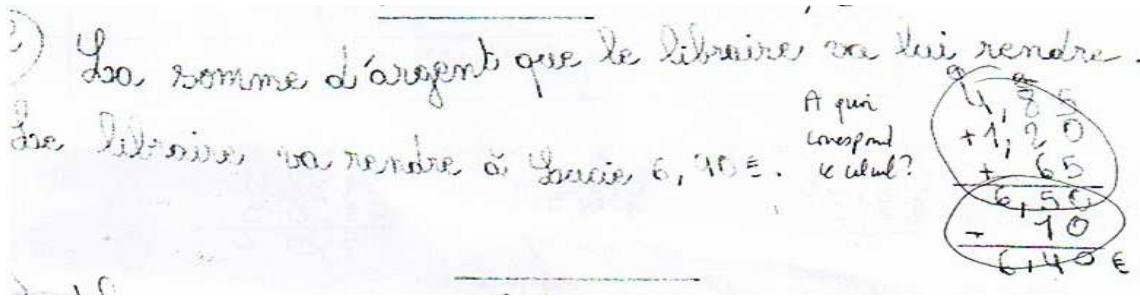 ) La somme d'argent que le libraire va lui rendre.
Le libraire va rendre à Lucie 6,40€.
A quoi
correspond
le calcul?
4,85
+1,20
+ 65
6,50
- 10
6,40 €